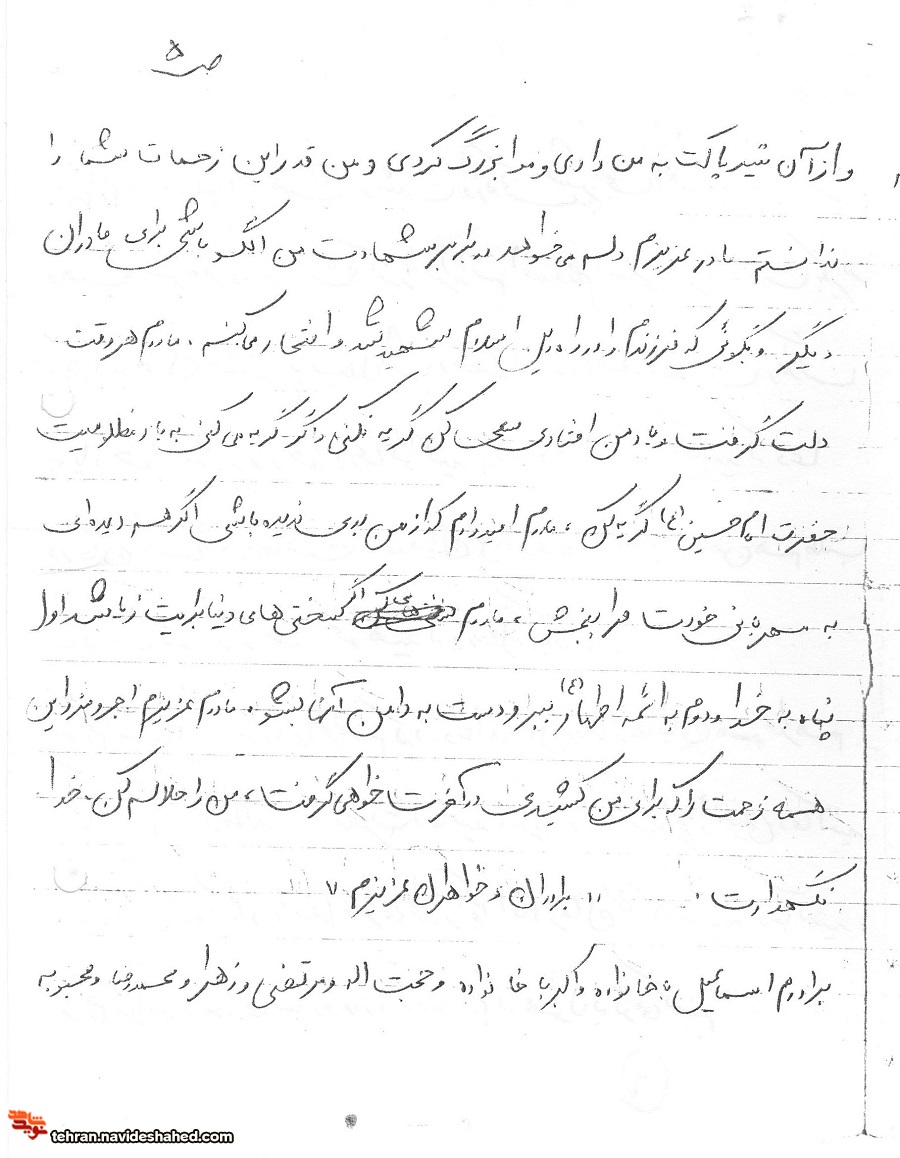 ص ۵
و از آن شیر پاکت به من دادی و مرا بزرگ کردی و من قدر این زحمات شما را
ندانستم مادر عزیزم دلم می‌خواهد در برابر شهادت من الگو باشی برای مادران
دیگر و بگوئی که فرزندم را در راه دین اسلام شهید شد و افتخار می‌کنم ، مادرم هر وقت
دلت گرفت و یاد من افتادی سعی کن گریه نکنی و اگر گریه می‌کنی به یاد مظلومیت
حضرت امام حسین (ع) گریه کن ، مادرم امیدوارم که از من بدی ندیده باشی اگر هم دیده‌ای
به مهربانی خودت مرا ببخش ، مادرم اگر سختی‌های دنیا برایت زیاد شد اول
پناه به خدا و دوم به ائمه اطهار (ع) ببر و دست به دامن آنها بشو . مادرم عزیزم اجر و مزد این
همه زحمت را که برای من کشیدی در آخرت خواهی گرفت ، من را حلالم کن . خدا
نگهدارت . " برادران و خواهران عزیزم "
برادرم اسماعیل با خانواده و اکبر با خانواده و حجت اله و مرتضی و زهرا و محمدرضا و محبوبه
نوید شاهد
tehran.navideshahed.com